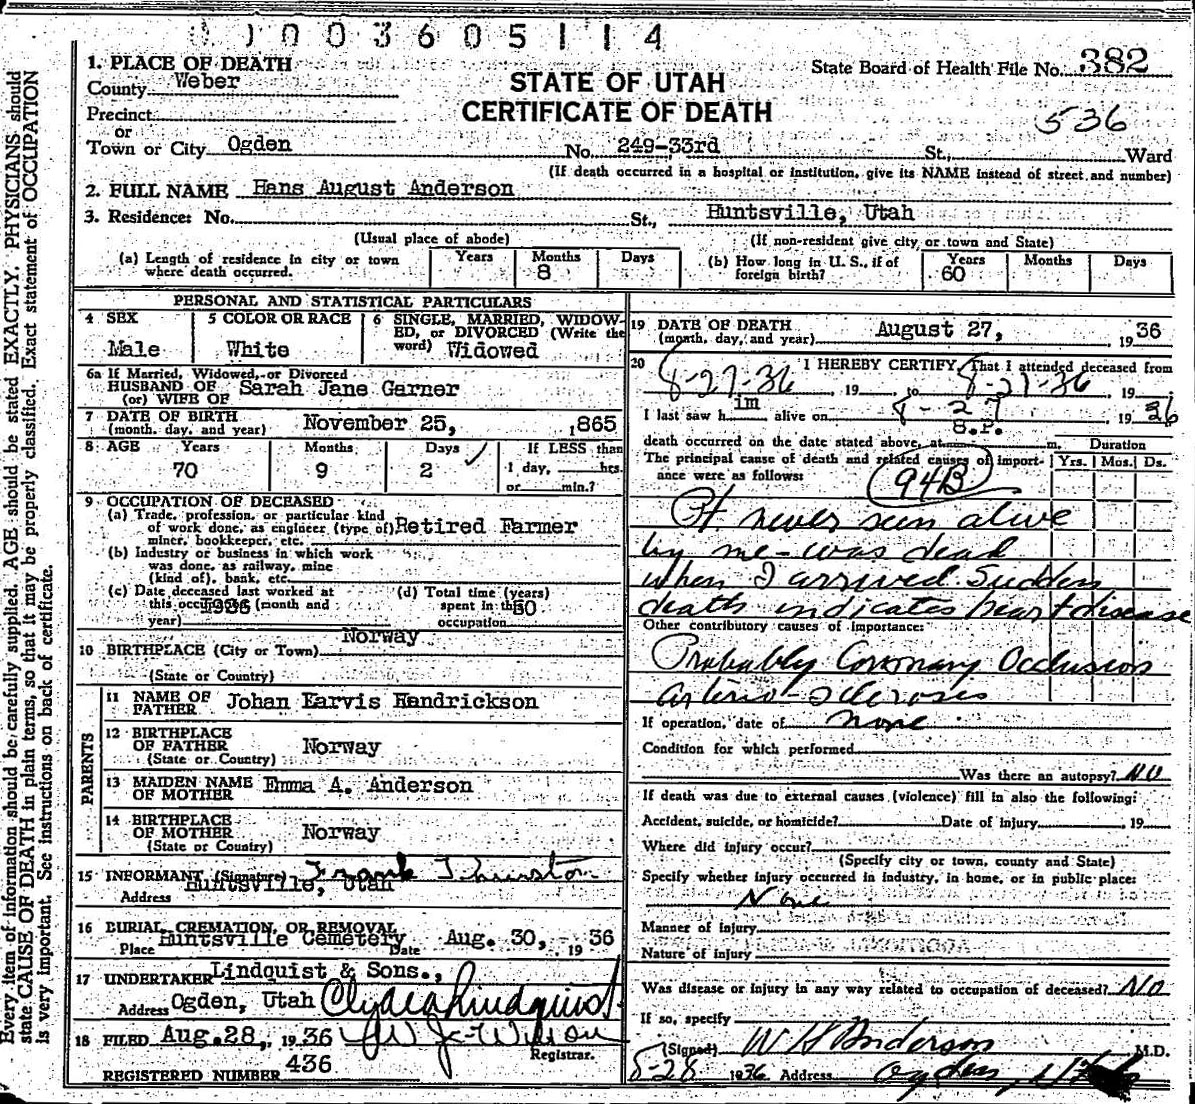 0 0 0 3 6 0 5 1 1 4
1. PLACE OF DEATH
County Weber
Precinct
or
Town or City Ogden No. 249-33rd St., Ward
(If death occurred in a hospital or institution, give its NAME instead of street and number)
STATE OF UTAH
CERTIFICATE OF DEATH
State Board of Health File No. 382
536
2. FULL NAME Hans August Anderson
3. Residence: No. St., Huntsville, Utah
(Usual place of abode) (If non-resident give city or town and State)
(a) Length of residence in city or town where death occurred. Years Months 8 Days
(b) How long in U. S., if of foreign birth? Years 60 Months Days
PERSONAL AND STATISTICAL PARTICULARS
4 SEX Male
5 COLOR OR RACE White
6 SINGLE, MARRIED, WIDOWED, or DIVORCED (Write the word) Widowed
6a If Married, Widowed, or Divorced
HUSBAND OF Sarah Jane Garner
(or) WIFE OF
7 DATE OF BIRTH November 25, 1865
(month, day, and year)
8 AGE Years 70 Months 9 Days 2 ✓ If LESS than
1 day, hrs.
or min.?
9 OCCUPATION OF DECEASED
(a) Trade, profession, or particular kind
of work done, as engineer (type of) Retired Farmer
miner, bookkeeper, etc.
(b) Industry or business in which work
was done, as railway, mine
(kind of), bank, etc.
(c) Date deceased last worked at
this occupation (month and
year) 1936
(d) Total time (years)
spent in this
occupation 50
10 BIRTHPLACE (City or Town) Norway
(State or Country)
PARENTS
11 NAME OF FATHER Johan Earvis Hendrickson
12 BIRTHPLACE OF FATHER Norway
(State or Country)
13 MAIDEN NAME OF MOTHER Emma A. Anderson
14 BIRTHPLACE OF MOTHER Norway
(State or Country)
15 INFORMANT (Signature) Frank Thurston
Address Huntsville, Utah
16 BURIAL, CREMATION, OR REMOVAL
Place Huntsville Cemetery Date Aug. 30, 1936
17 UNDERTAKER Lindquist & Sons.,
Address Ogden, Utah Clyde Lindquist
18 FILED Aug. 28, 1936
Registrar.
REGISTERED NUMBER 436
19 DATE OF DEATH August 27, 1936
(month, day, and year)
20 I HEREBY CERTIFY, That I attended deceased from
8-27-36, 19 to 8-27-36, 19
I last saw him alive on 8-27 1936
8.P.
death occurred on the date stated above, at m. Duration
The principal cause of death and related causes of importance were as follows: Yrs. Mos. Ds.
94B
Pt. never seen alive
by me - was dead
when I arrived. Sudden
death indicates heart disease
Other contributory causes of importance:
Probably Coronary Occlusion
arterio-sclerosis
If operation, date of none
Condition for which performed
Was there an autopsy? No
If death was due to external causes (violence) fill in also the following:
Accident, suicide, or homicide? Date of injury 19
Where did injury occur?
(Specify city or town, county and State)
Specify whether injury occurred in industry, in home, or in public place:
None
Manner of injury
Nature of injury
Was disease or injury in any way related to occupation of deceased? No
If so, specify
(Signed) W H Anderson M.D.
8-28 1936 Address Ogden, Utah
Every item of information should be carefully supplied. AGE should be stated EXACTLY. PHYSICIANS should
state CAUSE OF DEATH in plain terms, so that it may be properly classified. Exact statement of OCCUPATION
is very important. See instructions on back of certificate.